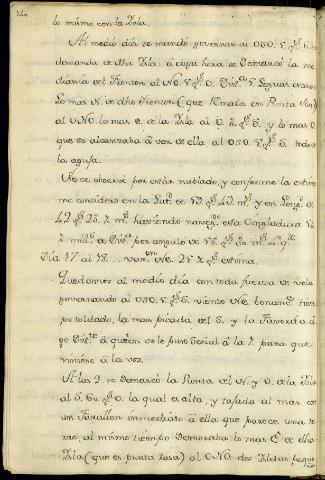 lo mismo con la Isla.
Al medio dia se mando governar al OSO. 5. g.s S. en
demanda de dha Isla: à cuya hora se Demarcò la me
diania del Frenton al NO. 5. g.s O. Dist.a 5. Leguas escasas
Lo mas N. de dho Frenton (que Remata en Punta
al ONO. lo mas E. de la Isla al O. 2. g.s S. y lo mas O.
que se alcanzaba à ver de ella al OSO. 5. g.s S. todo
la aguja.
No se observò por estàr nublado, y conforme la estima
me considero en la Lat.d de 43. g.s 42. m.s y en Long.d de
42. g.s 23. m.s haviendo naveg.do esta Singladura
mill.s de Dist.a por angulo de g.s 30. m.s
Dia 17 al 18... var.on NE. 21. g.s estima.
Quedamos al medio dia con toda fuerza de vela
governando al OSO. 5. g.s S. viento NE. bonanc.e tiem
po toldado, la mar picada del S. y la Favorita à
Dist.te à quien se le puso señal à la 1. para que
viniese à la voz.
A las 2. se Demarcò la Punta del N. y O. de la Isla
al S. 60. g.s O. la qual es alta, y tajada al mar con
un Farallon inmediato à ella que parece una to
rre, al mismo tiempo Demoraba lo mas E. de dha
Isla (que es punta rasa) al ONO. dos Isletas peque